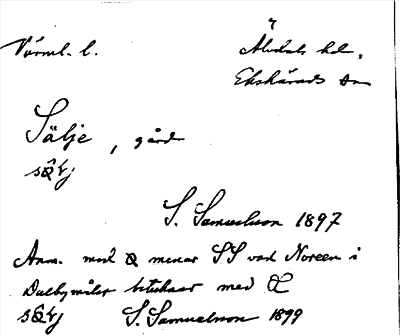 Värml. l. Älvdals hd.
Ekshärads sn
Sälje, gård
S. Samuelsson 1897
Anm. med æ menar SS vad Noreen i
Dalbymålet betecknar med Œ
S. Samuelsson 1899